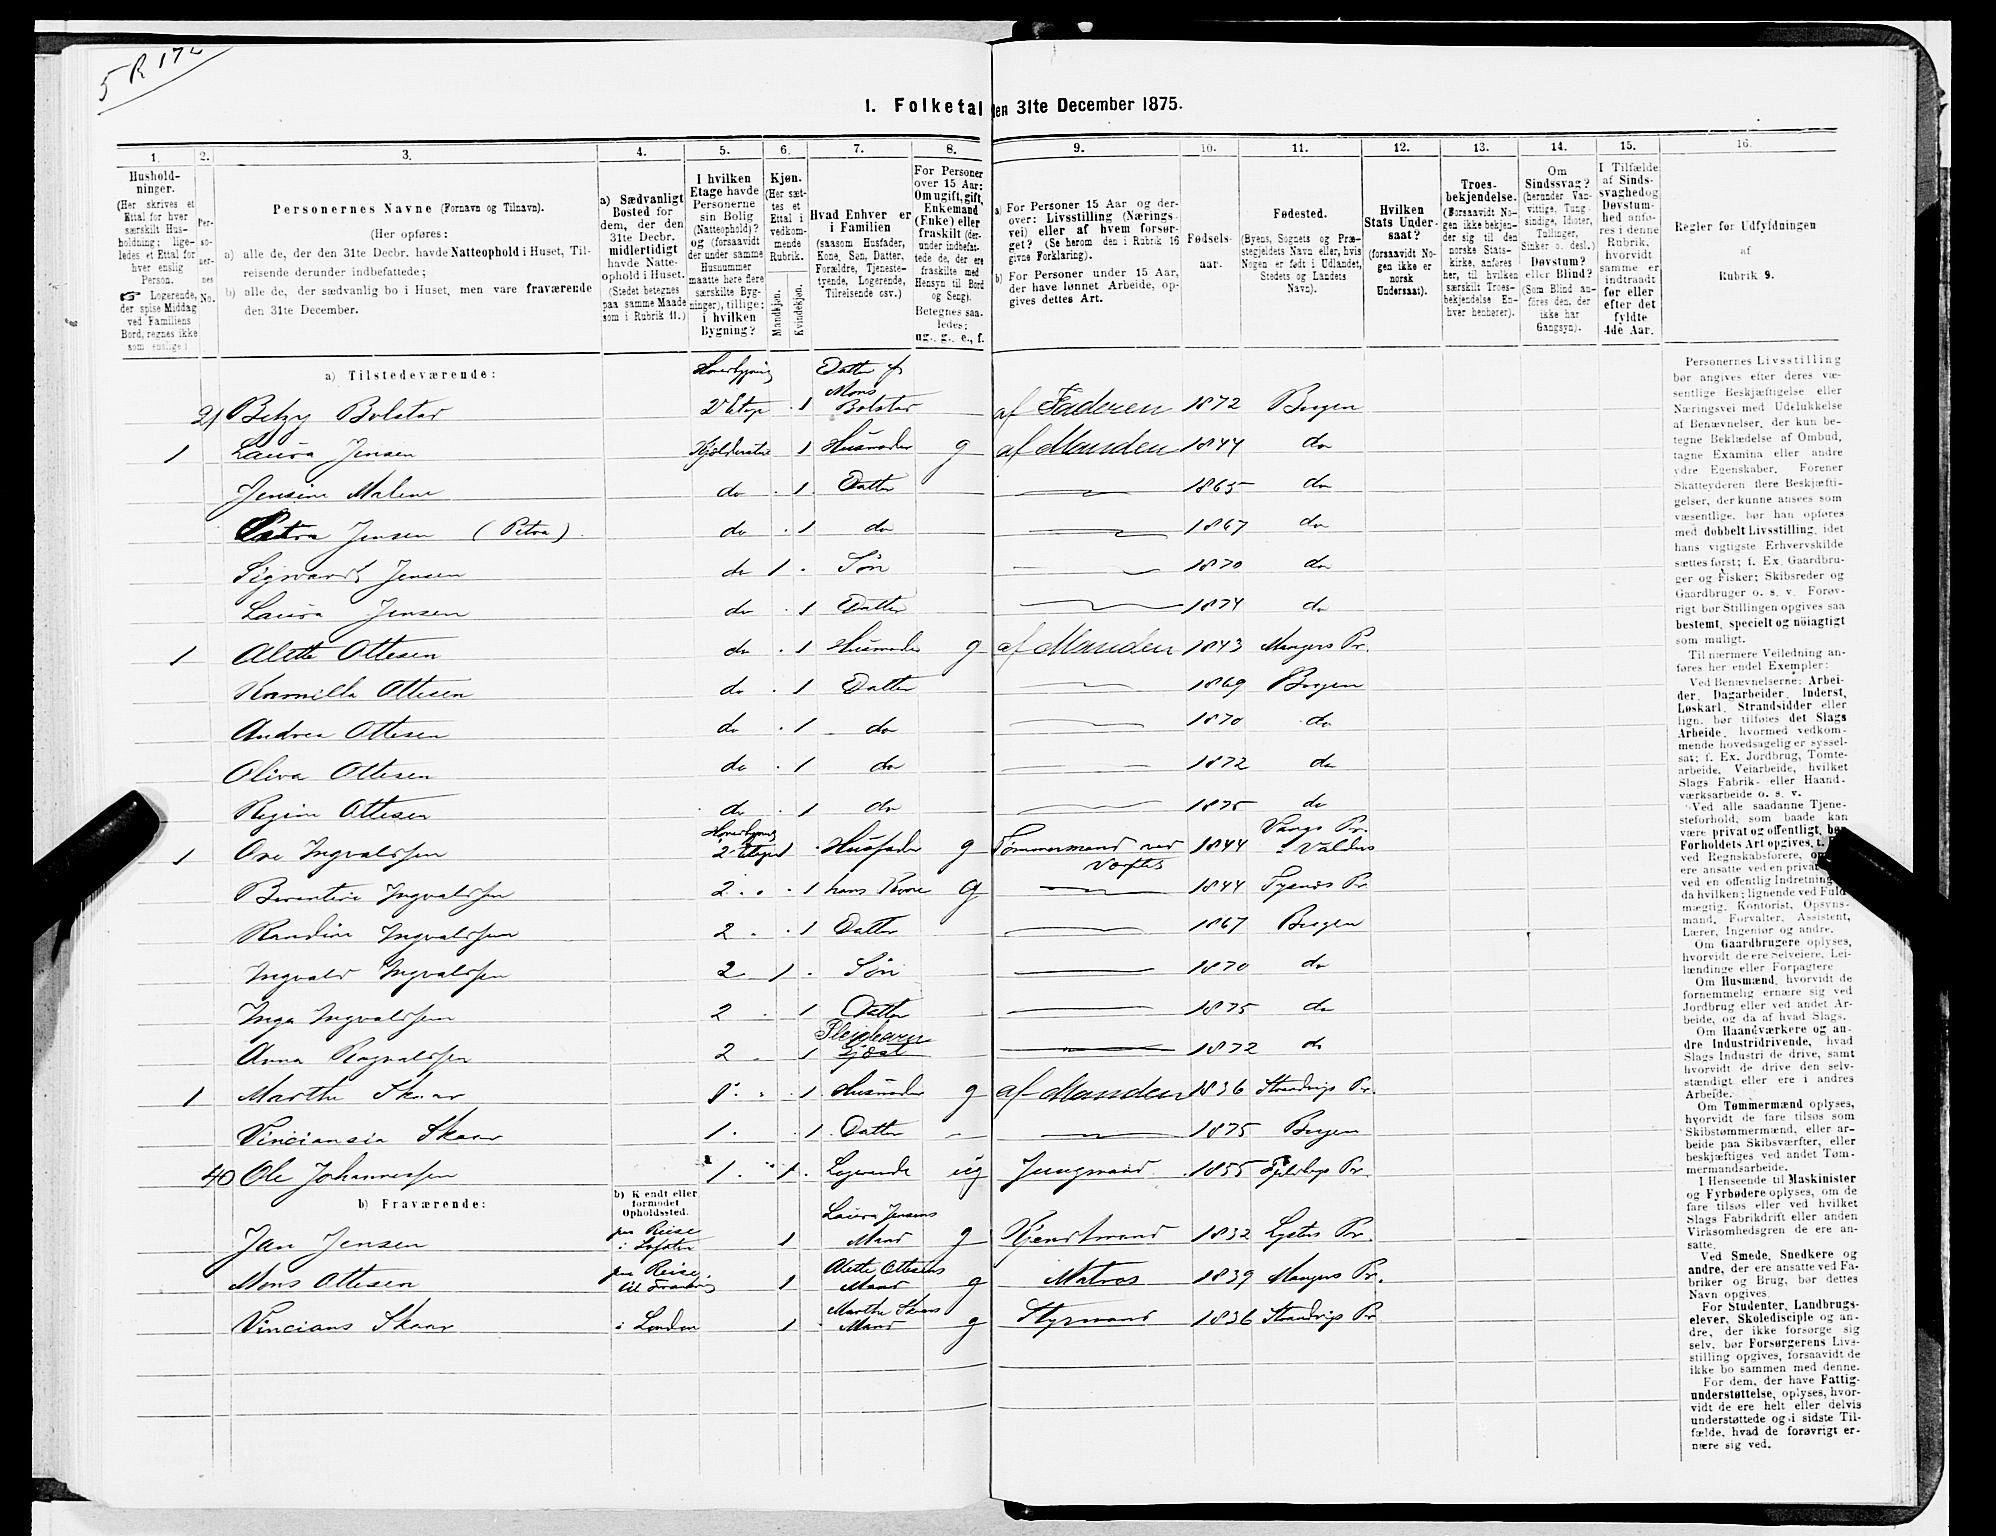 5 R 172
1. Folketal den 31te December 1875.
1. 2. 3. 4. 5. 6. 7. 8. 9. 10. 11. 12. 13. 14. 15. 16.
Hushold-
ninger.
(Her skrives et
Ettal for hver
særskilt Hus-
holdning; lige-
ledes et Ettal for
hver enslig
Person.
☞ Logerende,
der spise Middag
ved Familiens
Bord, regnes ikke
som enslige)
Per-
so-
ner-
nes
No.
Personernes Navne (Fornavn og Tilnavn).
(Her opføres:
a) alle de, der den 31te Decbr. havde Natteophold i Huset, Til-
reisende derunder indbefattede;
b) alle de, der sædvanlig bo i Huset, men vare fraværende
den 31te December.
a) Sædvanligt
Bosted for
dem, der den
31te Decbr.
midlertidigt
havde Natte-
ophold i Huset.
(Stedet betegnes
paa samme Maade
som i Rubrik 11.)
I hvilken
Etage havde
Personerne
sin Bolig
(Natteophold)?
og (forsaavidt
der under samme
Husnummer
maatte høre flere
særskilte Byg-
ninger), tillige:
i hvilken
Bygning?
Kjøn.
(Her sæt-
tes et
Ettal i
vedkom-
mende
Rubrik.
Mandkjøn.
Kvindekjøn.
Hvad Enhver er
i Familien
(saasom Husfader,
Kone, Søn, Datter,
Forældre, Tjeneste-
tyende, Logerende,
Tilreisende osv.)
For Personer
over 15 Aar:
Om ugift, gift,
Enkemand
(Enke) eller
fraskilt (der-
under indbefat-
tede de, der ere
fraskilte med
Hensyn til Bord
og Seng).
Betegnes saa-
ledes:
ug., g., e., f.
a) For Personer 15 Aar og der-
over: Livsstilling (Nærings-
vei) eller af hvem forsør-
get? (Se herom den i Rubrik 16
givne Forklaring).
b) For Personer under 15 Aar,
der have lønnet Arbeide, op-
gives dettes Art.
Fødsels-
aar.
Fødested.
(Byens, Sognets og Præ-
stegjeldets Navn eller, hvis
Nogen er født i Udlandet,
Stedets og Landets
Navn).
Hvilken
Stats Under-
saat?
(forsaavidt No-
gen ikke er
norsk
Undersaat).
Troes-
bekjendelse.
(Forsaavidt No-
gen ikke bekjen-
der sig til den
norske Stats-
kirke, anføres
her, til hvilken
særskilt Troes-
bekjendelse En-
hver henhører).
Om
Sindssvag?
(herunder Van-
vittige, Tung-
sindige, Idioter,
Tullinger,
Sinker o. desl.)
Døvstum?
eller Blind?
(Som Blind an-
føres den, der
ikke har
Gangsyn).
I Tilfælde
af Sinds-
svaghed og
Døvstum-
hed anfø-
res i denne
Rubrik,
hvorvidt
samme er
indtraadt
før eller
efter det
fyldte
4de Aar.
Regler for Udfyldningen
af
Rubrik 9.
a) Tilstedeværende:
21 Betzy Bolstad 2 Etage 1 Datter af Mons Bolstad af Faderen 1872 Bergen
1 Laura Jensen 1 Husmoder g af Manden 1844 do
Jensine Malene do 1 Datter 1865 do
Petra Jensen (Petra) do 1 do 1867 do
Sigvardt Jensen do 1 Søn 1870 do
Laura Jensen do 1 Datter 1874 do
1 Alette Ottesen do 1 Husmoder g af Manden 1843 Mangers Pr.
Kamilla Ottesen do 1 Datter 1869 Bergen
Andrea Ottesen do 1 do 1870 do
Oliva Ottesen do 1 do 1872 do
Regine Ottesen do 1 do 1875 do
1 Ove Ingvaldsen 2 Etage 1 Husfader g Tømmermand ved Værftet 1844 Vangs Pr. i Valders
Ingvaldsen 2 1 hans Kone g 1844 Tysnæs Pr
Randine Ingvaldsen 2 1 Datter 1867 Bergen
Ingvald Ingvaldsen 2 1 Søn 1870 do
Inga Ingvaldsen 2 1 Datter 1875 do
Anna Ragvaldsen 2 1 Pleiebarn 1872 do
1 Marthe Skaar 1 1 Husmoder g af Manden 1836 Strandvigs Pr.
Vinciansia Skaar 1 1 Datter 1875 Bergen
40 Ole Johannessen 1 1 Logerende ug Jungmand 1855 Pr.
b) Fraværende:
b) Kjendt eller
formodet
Opholdssted.
Jan Jensen paa Reise i Lofoten 1 Laura Jensens Mand g Kjendtmand 1832 Lysters Pr.
Mons Ottesen paa Reise til 1 Alette Ottesens Mand g Matros 1839 Mangers Pr.
Vincians Skaar i London 1 Marthe Skaars Mand g Styrmand 1836 Strandvigs Pr
Personernes Livsstilling
bør angives efter deres væ-
sentlige Beskjæftigelse eller
Næringsvei med Udelukkelse
af Benævnelser, der kun be-
tegne Beklædelse af Ombud,
tagne Examina eller andre
ydre Egenskaber. Forener
Skatteyderen flere Beskjæfti-
gelser, der kunne ansees som
væsentlige, bør han opføres
med dobbelt Livsstilling, idet
hans vigtigste Erhvervskilde
sættes først; f. Ex. Gaardbru-
ger og Fisker; Skibsreder og
Gaardbruger o. s. v. Forøv-
rigt bør Stillingen opgives saa
bestemt, specielt og nøiagtigt
som muligt.
Til nærmere Veiledning an-
føres her endel Exempler:
Ved Benævnelserne: Arbei-
der, Dagarbeider, Inderst,
Løskarl, Strandsidder eller
lign. bør tilføies det Slags
Arbeide, hvormed vedkom-
mende hovedsagelig er syssel-
sat; f. Ex. Jordbrug, Tømte-
arbeide, Veiarbeide, hvilket
Slags Fabrik- eller Haand-
værksarbeide o. s. v.
Ved alle saadanne Tjene-
steforhold, som baade kan
være privat og offentligt, bør
Forholdets Art opgives, t.
ved Regnskabsførere,
ere ansatte ved en privat
ved en offentlig Indretning
da hvilken; lignende ved Fuld-
mægtig, Kontorist, Opsyns-
mand, Forvalter, Assistent,
Lærer, Ingeniør og andre.
Om Gaardbrugere oplyses,
hvorvidt de ere Selveiere, Lei-
lændinge eller Forpagtere
Om Husmænd, hvorvidt de
fornemmelig ernære sig ved
Jordbrug eller ved andet Ar-
beide, og da af hvad Slags.
Om Haandværkere og an-
dre Industridrivende, hvad
Slags Industri de drive, samt
hvorvidt de drive den selv-
stændigt eller ere i andres
Arbeide.
Om Tømmermænd oplyses,
hvorvidt de fare tilsøs som
Skibstømmermænd, eller ar-
beide paa Skibsværfter, eller
beskjæftiges ved andet Tøm-
mermandsarbeide.
I Henseende til Maskinister
og Fyrbødere oplyses, om de
fare tilsøs eller ved hvilket
Slags Fabrikdrift eller anden
Virksomhedsgren de ere an-
satte.
Ved Smede, Snedkere og
andre, der ere ansatte ved Fa-
briker og Brug, bør dettes
Navn opgives.
For Studenter, Landbrugs-
elever, Skoledisciple og an-
dre, der ikke forsørge sig
selv, bør Forsørgerens Livs-
stilling opgives, forsaavidt de
ikke bo sammen med denne.
For dem, der have Fattig-
understøttelse, oplyses, hvor-
vidt de ere helt eller delvis
understøttede og i sidste Til-
fælde, hvad de forøvrigt er-
nære sig ved.